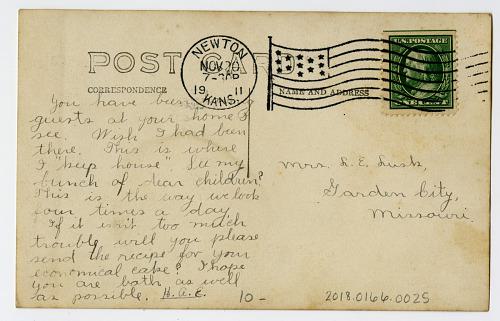 POST CARD
CORRESPONDENCE
NAME AND ADDRESS
NEWTON
NOV 20
7-30P
1911
KANS.
U.S. POSTAGE
You have been
guests at your home I
see. Wish I had been
there. This is where
I "keep house". See my
bunch of dear children?
This is the way we look
four times a day.
If it isn't too much
trouble will you please
send the recipe for your
economical cake? I hope
you are both as well
as possible. H.A.E.
10-
Mrs. L. E. Lusk,
Garden City,
Missouri.
2018.0166.0025